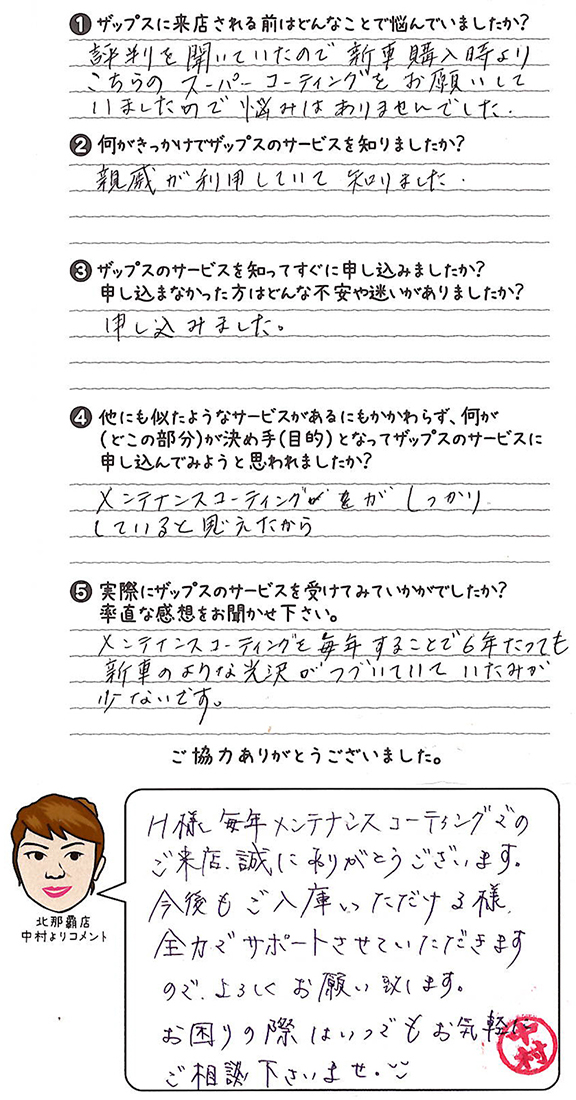 ❶ ザップスに来店される前はどんなことで悩んでいましたか?
評判を聞いていたので新車購入時より
こちらのスーパーコーティングをお願いして
いましたので悩みはありませんでした.
❷ 何がきっかけでザップスのサービスを知りましたか?
親戚が利用していて知りました.
❸ ザップスのサービスを知ってすぐに申し込みましたか?
申し込まなかった方はどんな不安や迷いがありましたか?
申し込みました。
❹ 他にも似たようなサービスがあるにもかかわらず、何が
(どこの部分)が決め手(目的)となってザップスのサービスに
申し込んでみようと思われましたか?
メンテナンスコーティングがしっかり
していると思えたから
❺ 実際にザップスのサービスを受けてみていかがでしたか?
率直な感想をお聞かせ下さい。
メンテインスコーティングを毎年することで6年たっても
新車のような光沢がつづいていていたみが
少ないです。
ご協力ありがとうございました。
H様、毎年メンテナンスコーティングでの
ご来店、誠にありがとうございます。
今後もご入庫いただける様、
全力でサポートさせていただきます
ので、よろしくお願い致します。
お困りの際はいつでもお気軽に
ご相談下さいませ。
中村
北那覇店
中村よりコメント